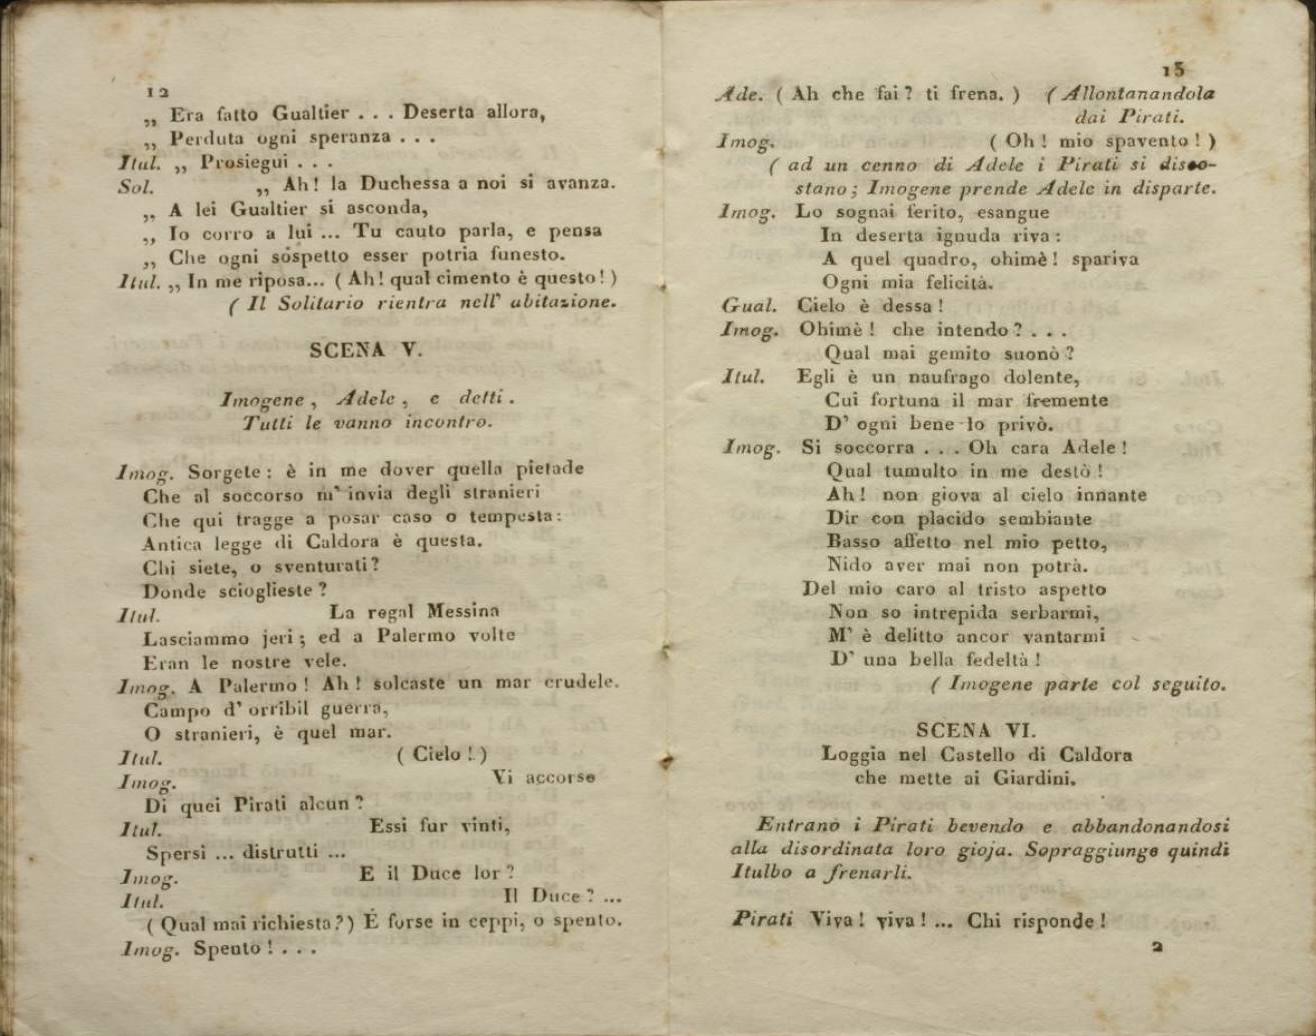 12
„ Era fatto Gualtier . . . Deserta allora,
„ Perduta ogni speranza . . .
Itul. „ Prosiegui . . .
Sol. „ Ah! la Duchessa a noi si avanza.
„ A lei Gualtier si asconda,
„ Io corro a lui ... Tu cauto parla, e pensa
„ Che ogni sospetto esser potria funesto.
Itul. „ In me riposa... ( Ah! qual cimento è questo! )
( Il Solitario rientra nell' abitazione.
SCENA V.
Imogene , Adele , e detti .
Tutti le vanno incontro.
Imog. Sorgete : è in me dover quella pietade
Che al soccorso m' invia degli stranieri
Che qui tragge a posar caso o tempesta:
Antica legge di Caldora è questa.
Chi siete, o sventurati?
Donde scioglieste?
Itul. La regal Messina
Lasciammo jeri; ed a Palermo volte
Eran le nostre vele.
Imog. A Palermo! Ah! solcaste un mar crudele.
Campo d' orribil guerra,
O stranieri, è quel mar.
Itul. ( Cielo! )
Imog. Vi accorse
Di quei Pirati alcun?
Itul. Essi fur vinti,
Spersi ... distrutti ...
Imog. E il Duce lor?
Itul. Il Duce? ...
( Qual mai richiesta?) È forse in ceppi, o spento.
Imog. Spento! . . .
15
Ade. ( Ah che fai? ti frena. ) ( Allontanandola
dai Pirati.
Imog. ( Oh! mio spavento! )
( ad un cenno di Adele i Pirati si disco-
stano; Imogene prende Adele in disparte.
Imog. Lo sognai ferito, esangue
In deserta ignuda riva:
A quel quadro, ohimè! spariva
Ogni mia felicità.
Gual. Cielo è dessa!
Imog. Ohimè! che intendo? . . .
Qual mai gemito suonò?
Itul. Egli è un naufrago dolente,
Cui fortuna il mar fremente
D' ogni bene lo privò.
Imog. Si soccorra . . . Oh cara Adele!
Qual tumulto in me destò!
Ah! non giova al cielo innante
Dir con placido sembiante
Basso affetto nel mio petto,
Nido aver mai non potrà.
Del mio caro al tristo aspetto
Non so intrepida serbarmi,
M' è delitto ancor vantarmi
D' una bella fedeltà!
( Imogene parte col seguito.
SCENA VI.
Loggia nel Castello di Caldora
che mette ai Giardini.
Entrano i Pirati bevendo e abbandonandosi
alla disordinata loro gioja. Sopraggiunge quindi
Itulbo a frenarli.
Pirati Viva! viva! ... Chi risponde!
2